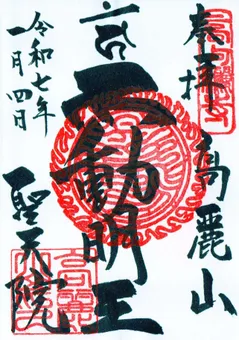 奉拝
高麗山
不動明王
令和七年
一月四日
聖天院